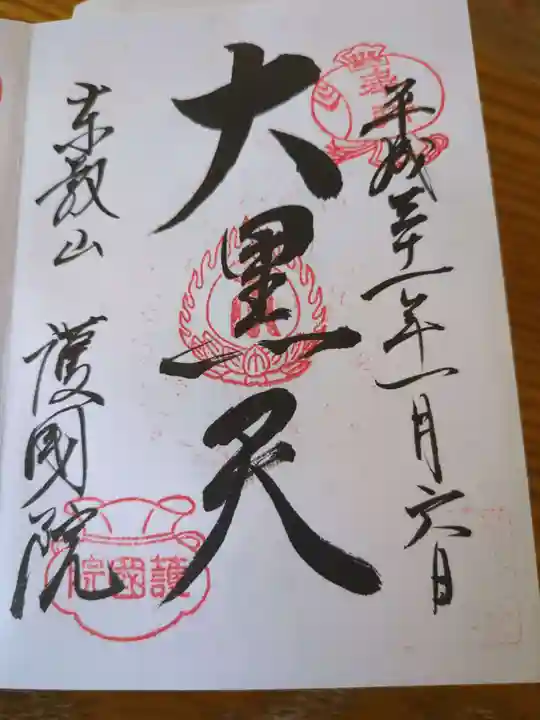 平成三十一年一月六日
大黒天
東叡山 護國院
護國院